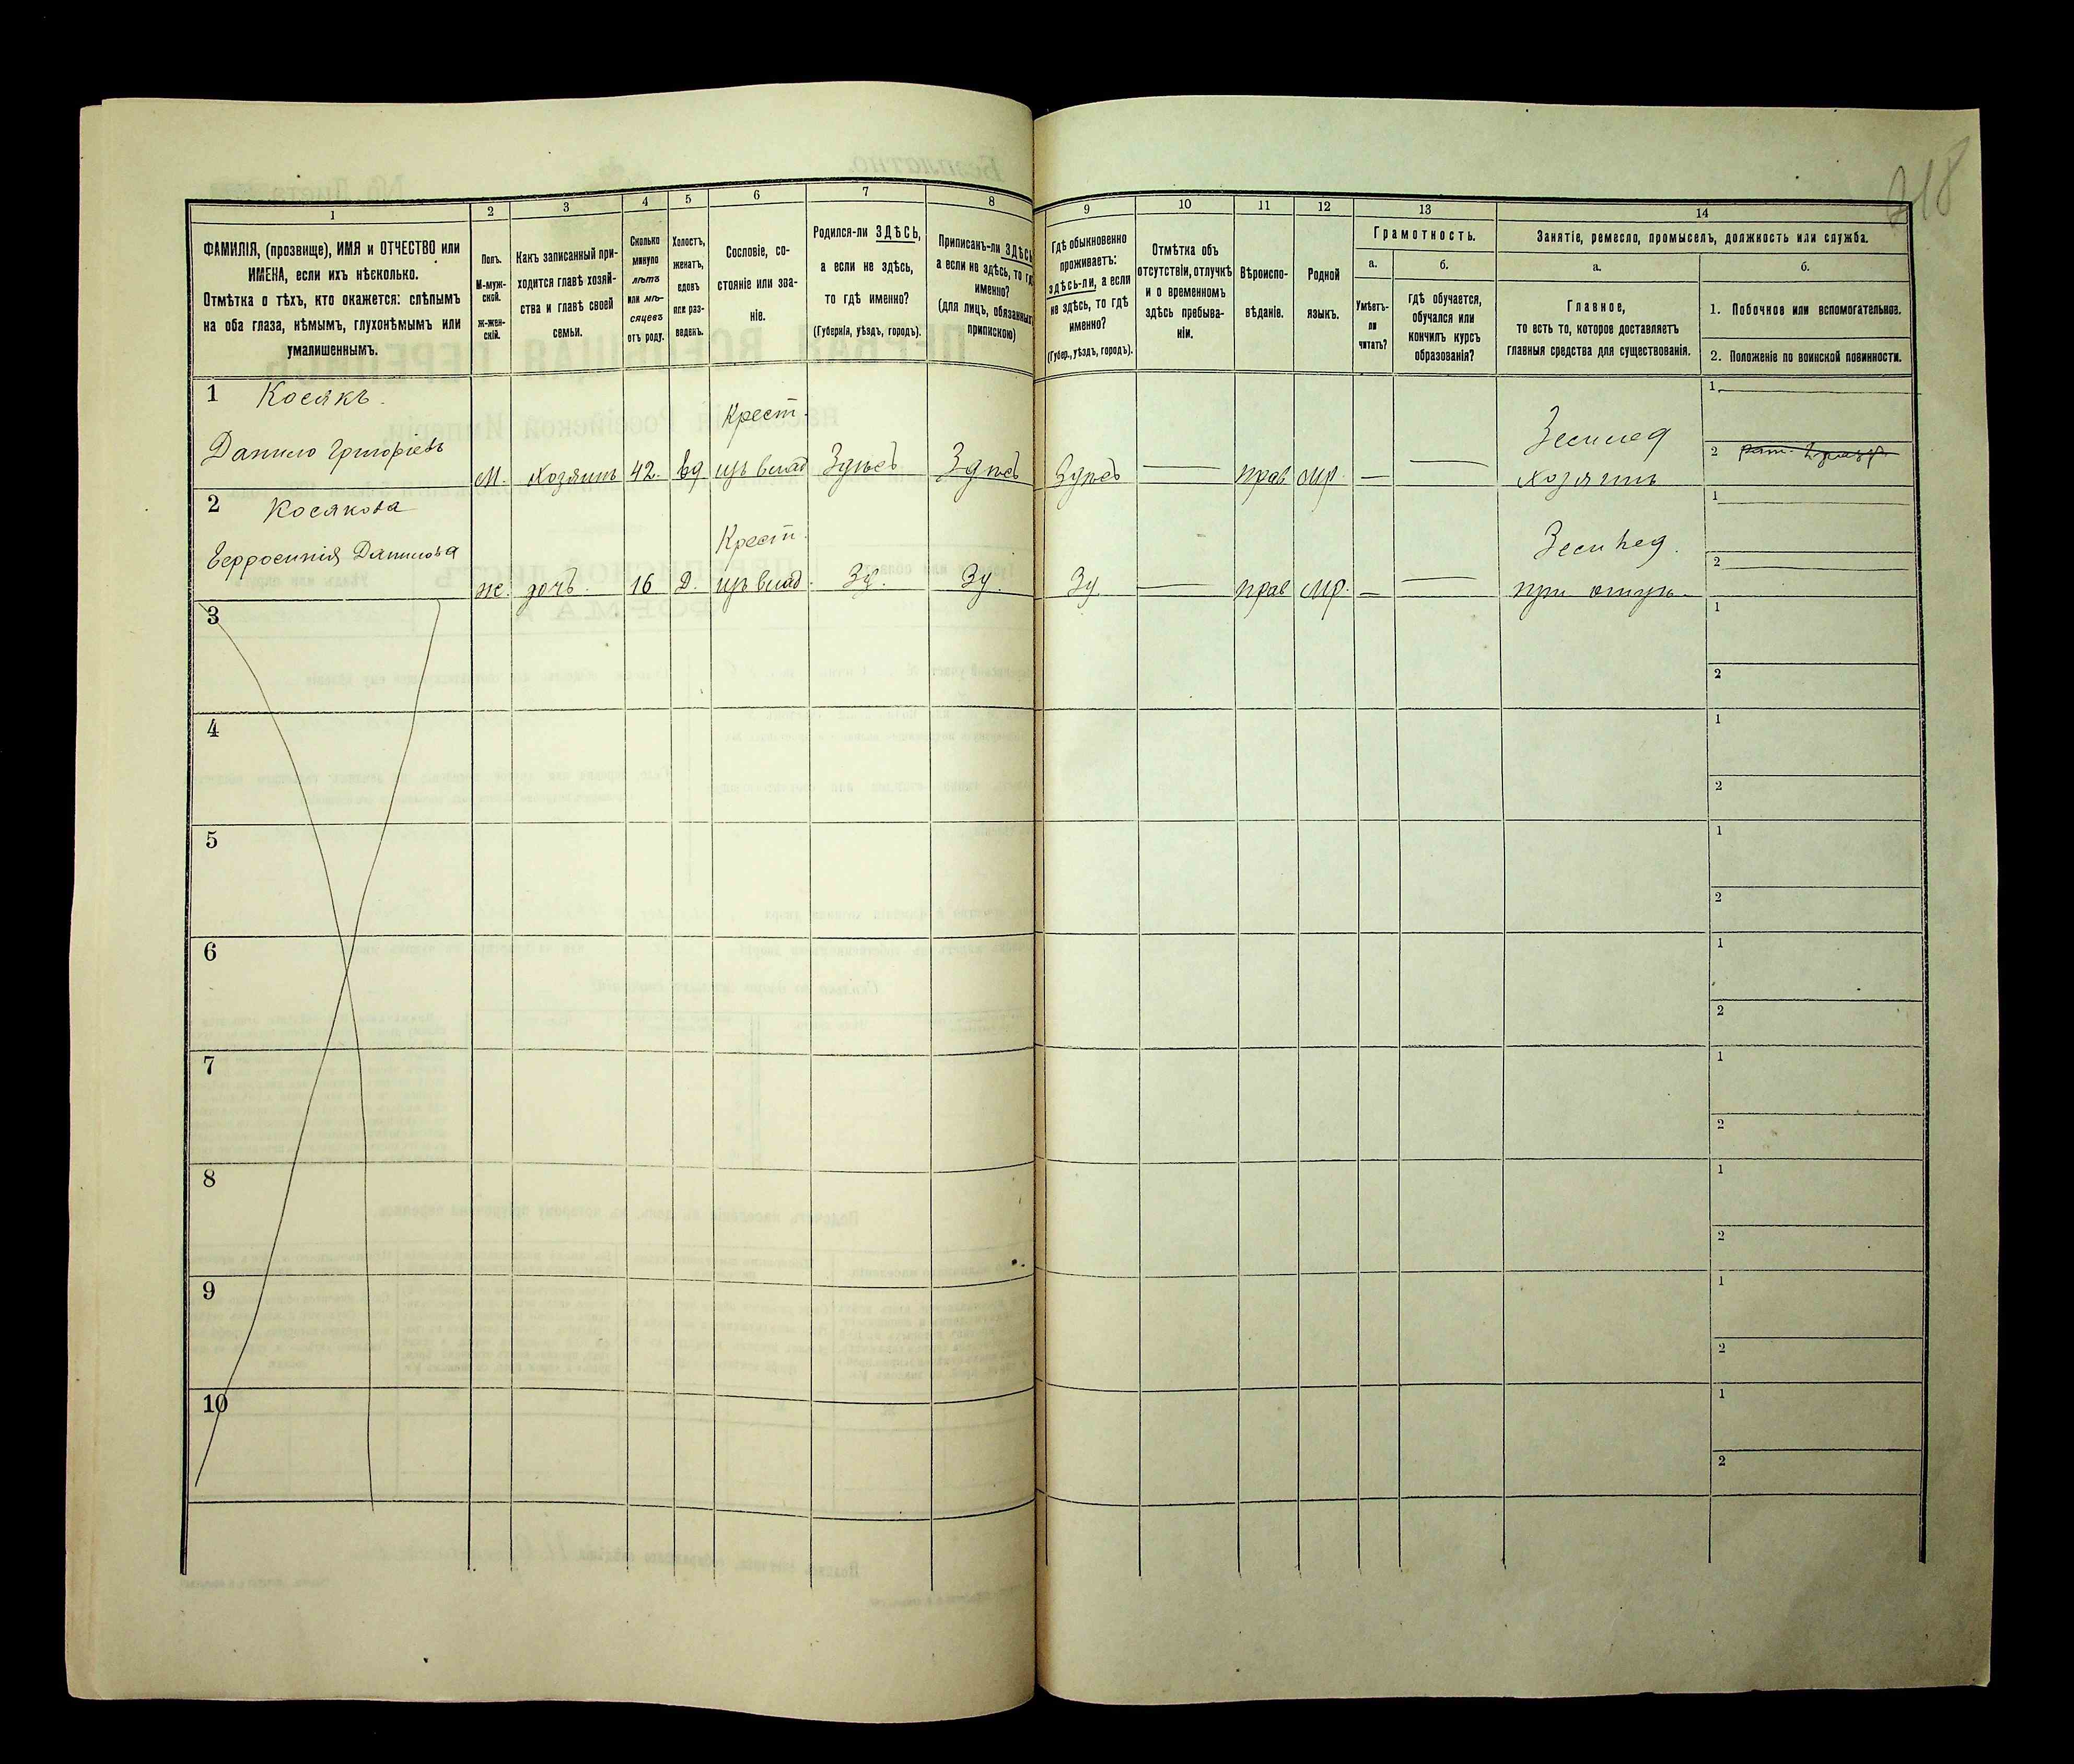 218
1
2
3
4
5
6
7
8
9
10
11
12
13
14
ФАМИЛІЯ, (прозвище), ИМЯ и ОТЧЕСТВО или
ИМЕНА, если ихъ нѣсколько.
Отмѣтка о тѣхъ, кто окажется: слѣпымъ
на оба глаза, нѣмымъ, глухонѣмымъ или
умалишеннымъ.
Полъ.
М-муж-
ской.
Ж-жен-
скій.
Какъ записанный при-
ходится главѣ хозяй-
ства и главѣ своей
семьи.
Сколько
минуло
лѣтъ
или мѣ-
сяцевъ
отъ роду.
Холостъ,
женатъ,
вдовъ
или раз-
веденъ.
Сословіе, со-
стояніе или зва-
ніе.
Родился-ли ЗДѢСЬ,
а если не здѣсь,
то гдѣ именно?
(Губернія, уѣздъ, городъ).
Приписанъ-ли ЗДѢСЬ
а если не здѣсь, то гдѣ
именно?
(для лицъ, обязанных
припискою)
Гдѣ обыкновенно
проживаетъ:
здѣсь-ли, а если
не здѣсь, то гдѣ
именно?
(Губер., уѣздъ, городъ).
Отмѣтка объ
отсутствіи, отлучкѣ
и о временномъ
здѣсь пребыва-
ніи.
Вѣроиспо-
вѣданіе.
Родной
языкъ.
Грамотность.
а.
Умѣетъ-
ли
читать?
б.
гдѣ обучается,
обучался или
кончилъ курсъ
образованія?
Занятіе, ремесло, промыселъ, должность или служба.
а.
Главное,
то есть то, которое доставляетъ
главныя средства для существованія.
б.
1. Побочное или вспомогательное.
2. Положеніе по воинской повинности.
1 Косякъ.
Данило Григорьевъ
М. Хозяинъ 42 вд. Крест. изъ влад Здѣсь Здѣсь Здѣсь — прав мр. — — Землед хозяинъ
1
2
2 Косякова
Евфросинія Данилова
ж. дочь. 16 д. Крест. изъ влад. Зд. Зд. Зд — прав мр. — — Землед. при отцѣ
1
2
3
1
2
4
1
2
5
1
2
6
1
2
7
1
2
8
1
2
9
1
2
10
1
2